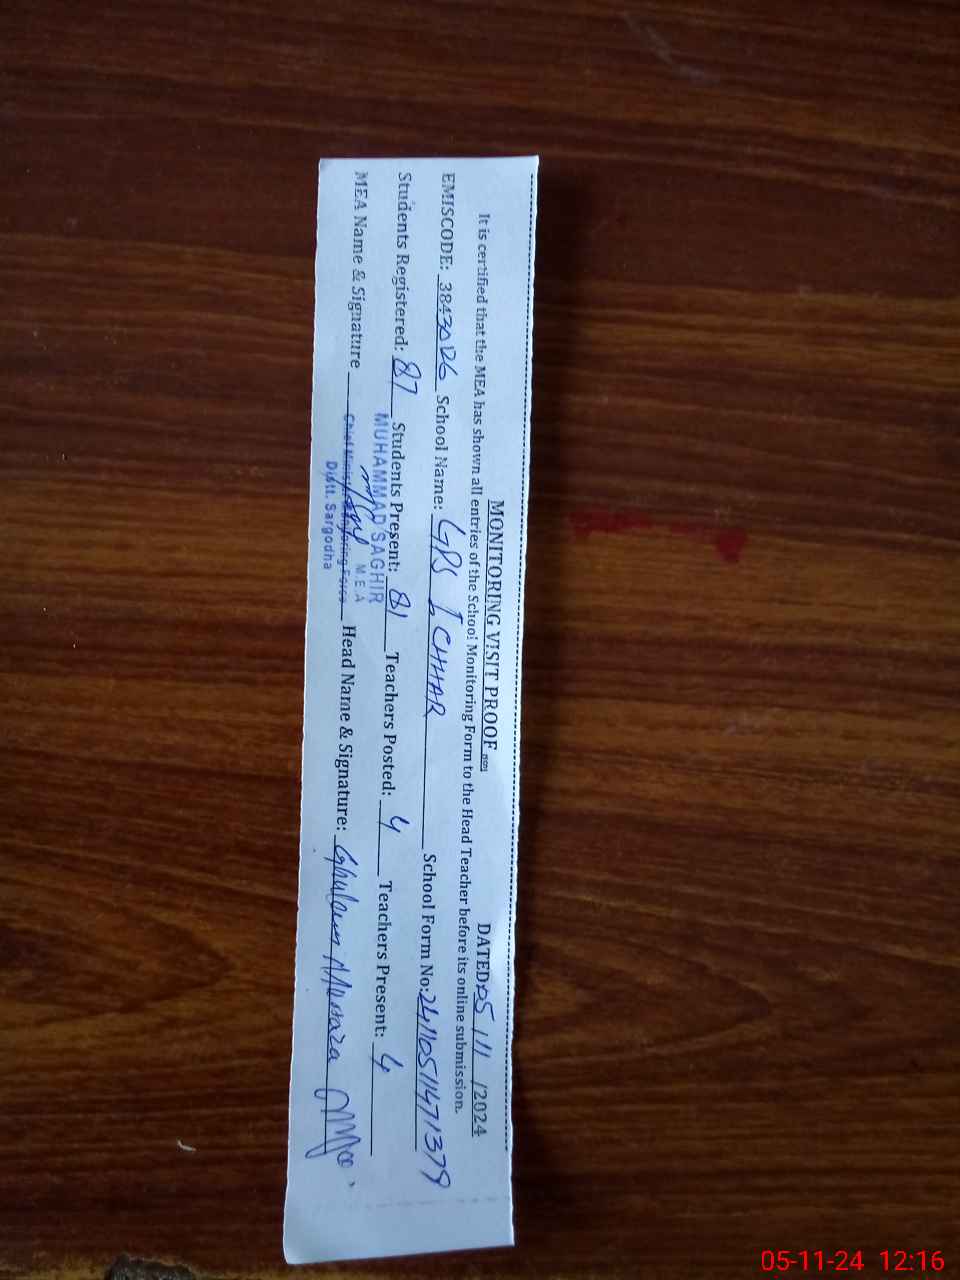 MONITORING VISIT PROOF
DATED: 05 / 11 / 2024
It is certified that the MEA has shown all entries of the School Monitoring Form to the Head Teacher before its online submission.
EMISCODE: 38430126 School Name: GPS 1 CHHAR School Form No: 2411051471379
Students Registered: 87 Students Present: 81 Teachers Posted: 4 Teachers Present: 4
MUHAMMAD SAGHIR
M.E.A
MEA Name & Signature Head Name & Signature: Ghulam Murtaza
Chief Minister Monitoring Force
Distt. Sargodha
05-11-24 12:16